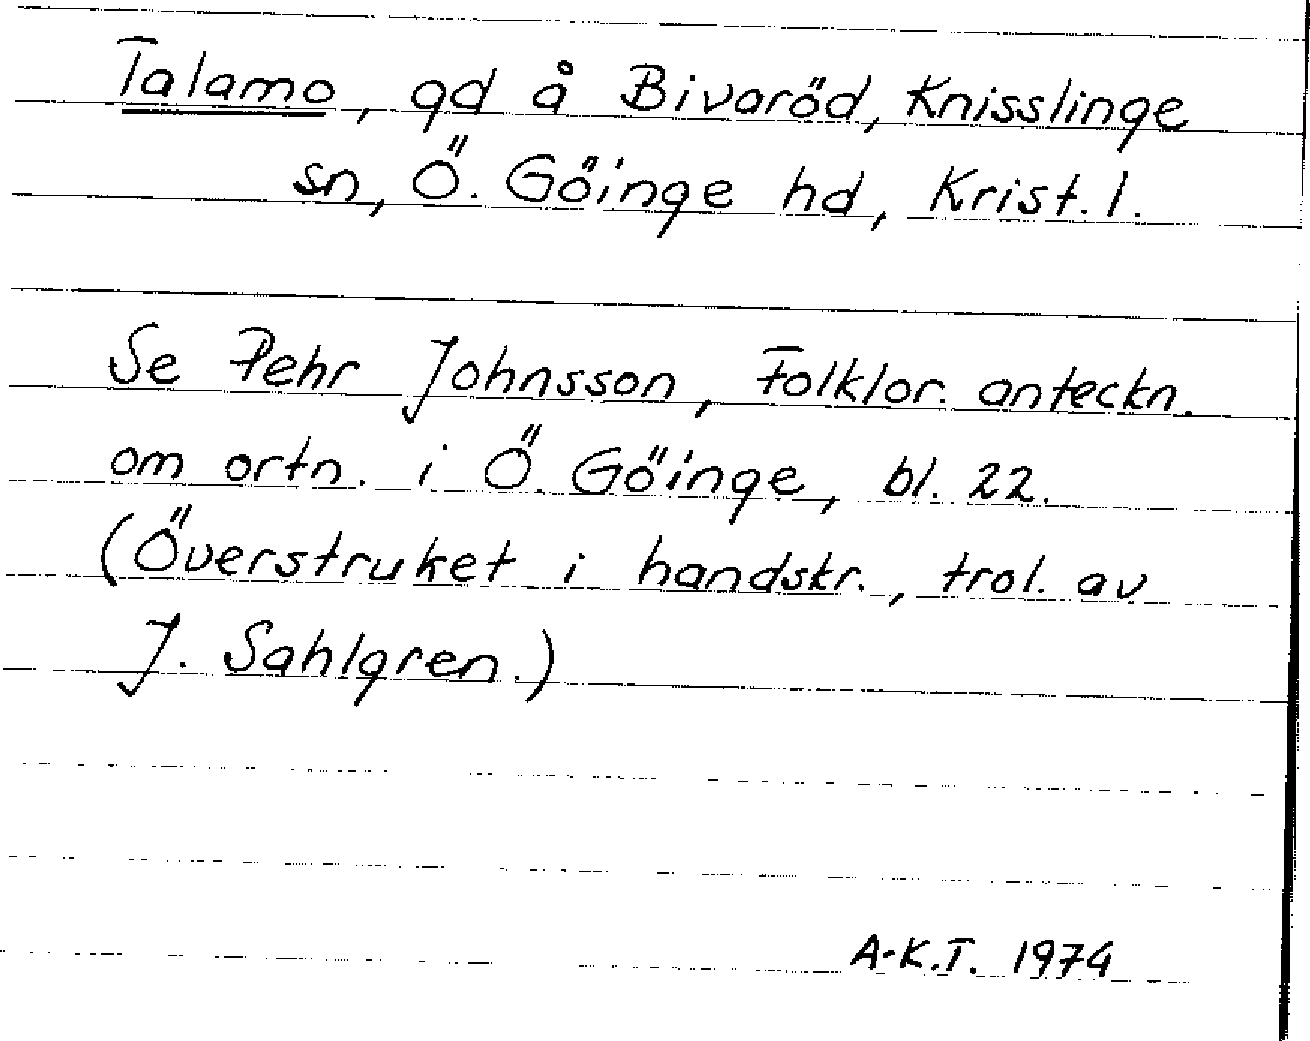 Talamo, gd å Bivaröd, Knisslinge
sn, Ö. Göinge hd, Krist. l.
Se Pehr Johnsson, Folklor. anteckn.
om ortn. i Ö. Göinge, bl. 22.
(Överstruket i handskr., trol. av
J. Sahlgren.)
A-K.T. 1974